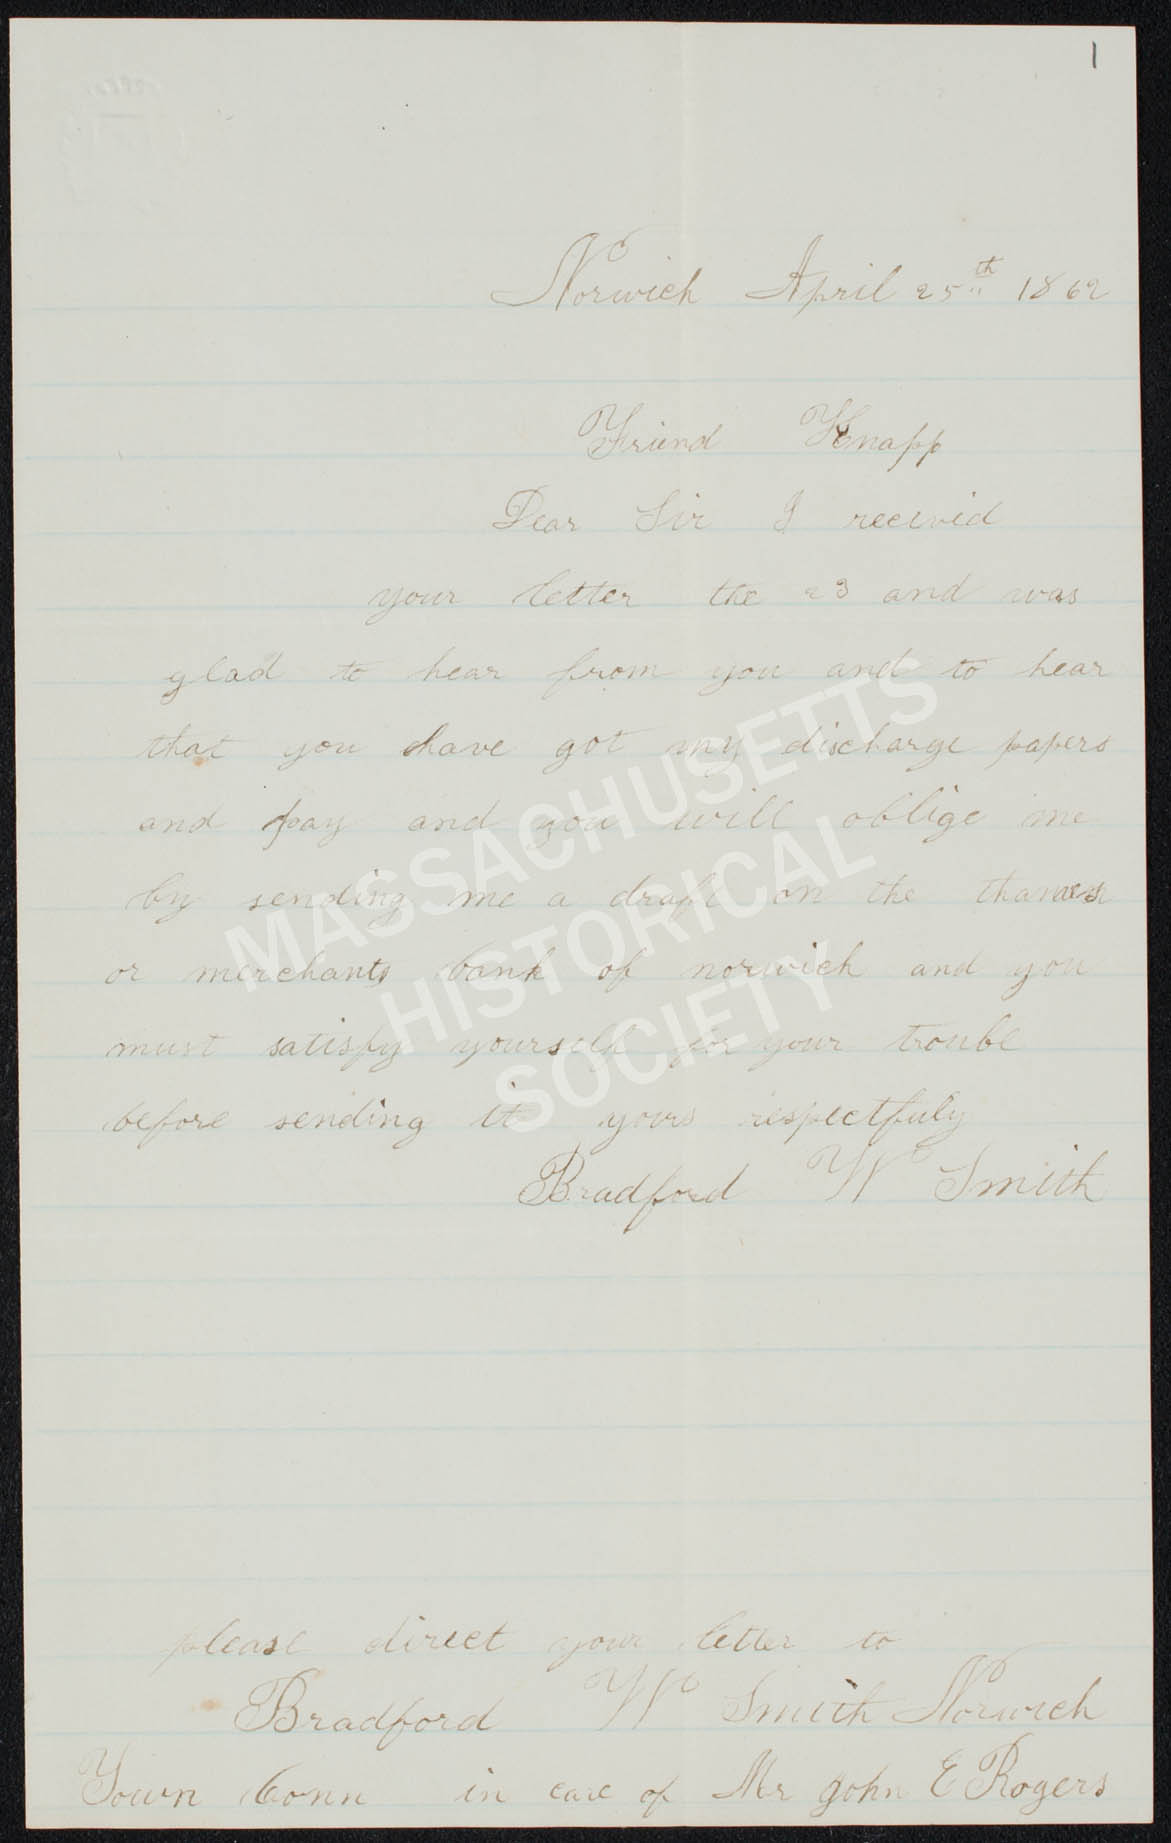 1
Norwich April 25th 1862
Friend Knapp
Dear Sir I recevid
your letter the 23 and was
glad to hear from you and to hear
that you have got my discharge papers
and pay and you will oblige me
by sending me a draft on the thames
or merchants bank of norwich and you
must satisfy yourself for your troubl
before sending it yours respectfuly
Bradford W Smith
please direct your letter to
Bradford W Smith Norwich
Town Conn in care of Mr John E Rogers
MASSACHUSETTS
HISTORICAL
SOCIETY